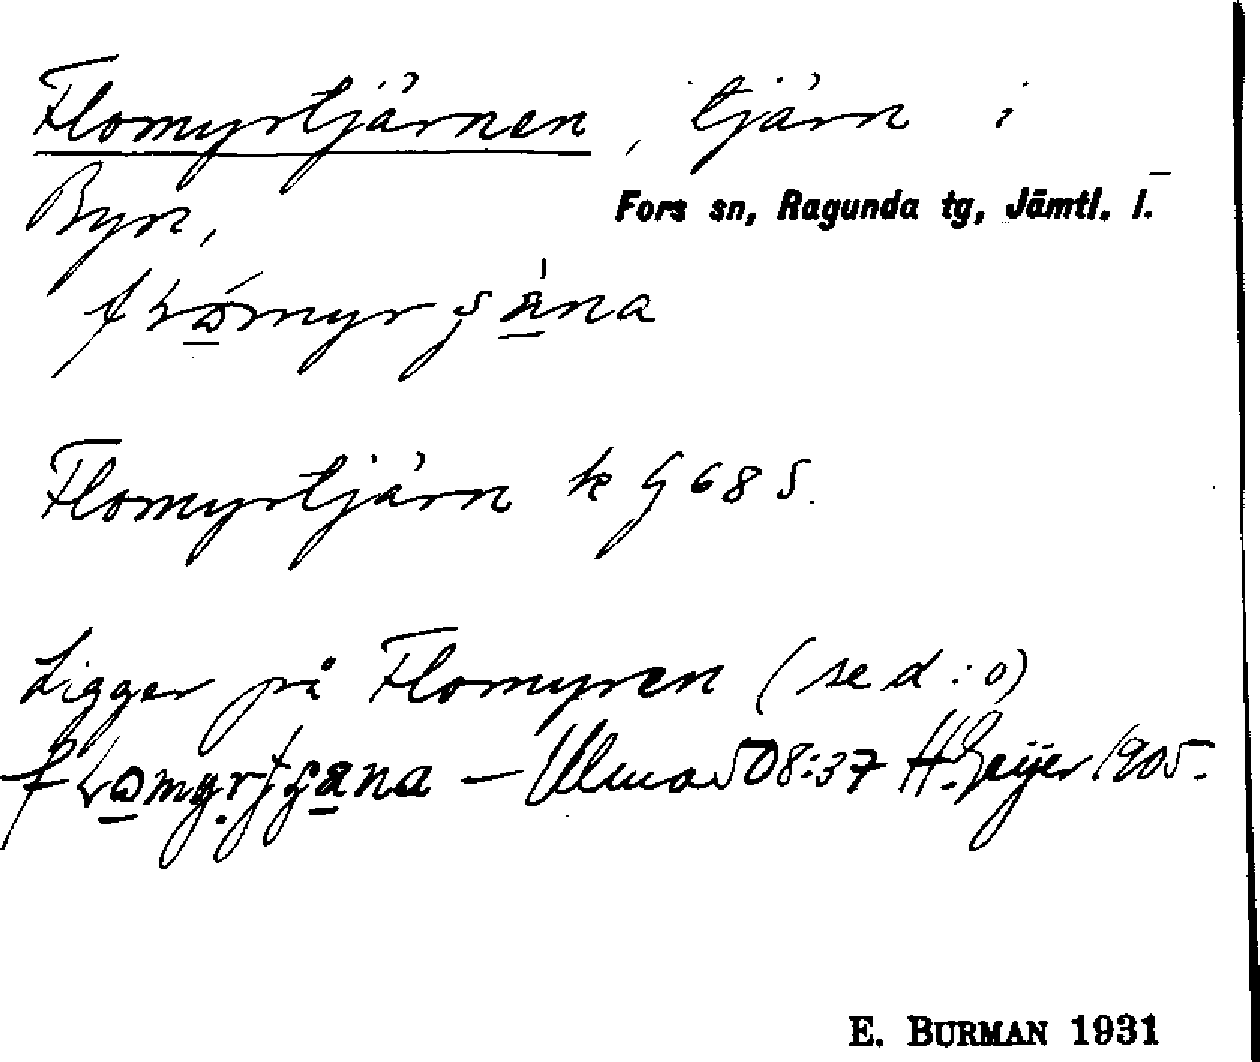 Flomyrtjärnen, tjärn i
Byn, Fors sn, Ragunda tg, Jämtl. l.
Flomyrtjärn k G 68 S.
Ligger på Flomyren (se d:o)
— Ulma 508:37 H. Geijer 1905.
E. BURMAN 1931